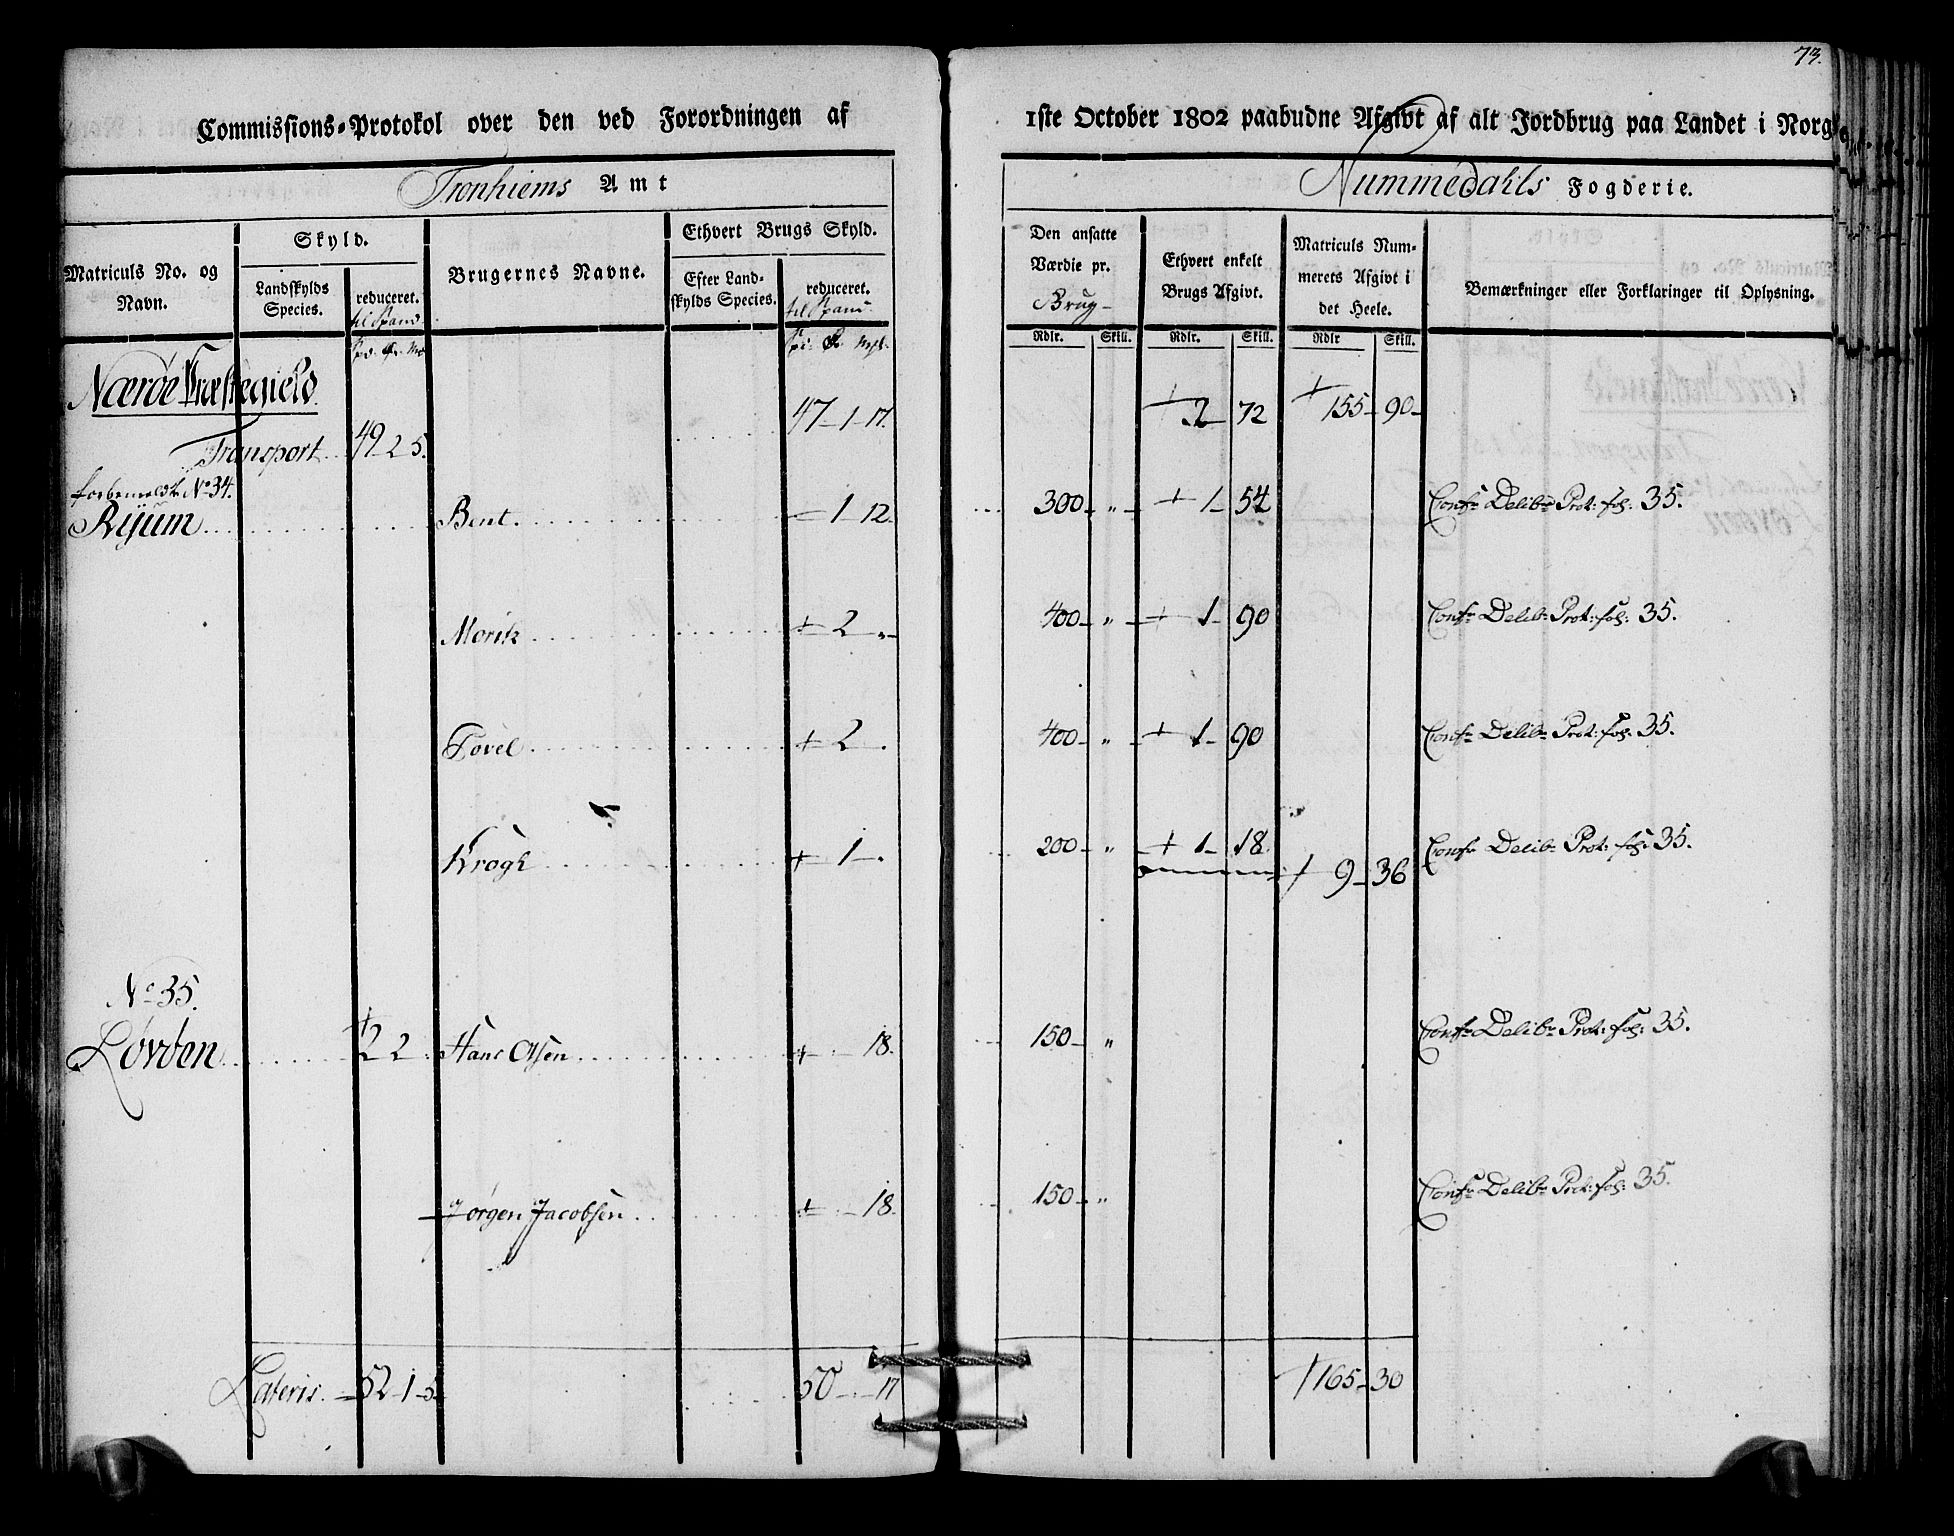 73.
Commissions-Protokol over den ved Forordningen af 1ste October 1802 paabudne Afgivt af alt Jordbrug paa Landet i Norg
Tronhiems Amt
Nummedahls Fogderie.
Matriculs No. og Navn.
Skyld.
Landskylds Species.
reduceret. til Spand.
Brugernes Navne.
Ethvert Brugs Skyld.
Efter Landskylds Species.
reduceret. til Spand.
Den ansatte Værdie pr. Brug
Ethvert enkelt Brugs Afgivt.
Matriculs Nummerets Afgivt i det Heele.
Bemærkninger eller Forklaringer til Oplysning.
Rdlr. Skill. Rdlr. Skill. Rdlr Skill.
Nærøe Præstegield
Transport 49 2 5. 47 1 17. + 2 72 + 155 90
forbemeldte No 34.
Rijum Bent 1 12. 300 " + 1 54 Confr Delibr Prot: fol: 35.
Morik + 2 " 400 " + 1 90 Confr Delibr Prot: fol: 35.
Tovel + 2 . 400 " + 1 90 Confr Delibr Prot: fol: 35.
Krogh + 1 . 200 " + 1 18. Confr Delibr Prot: fol: 35.
+ 9 36
No 35.
Løvöen + 2 2 Hans Olsen + 18. 150 " Confr Delibr Prot: fol: 35.
Jørgen Jacobsen + 18. 150 " Confr Delibr Prot: fol: 35.
Lateris. 52 1 5 50 17 + 165 30